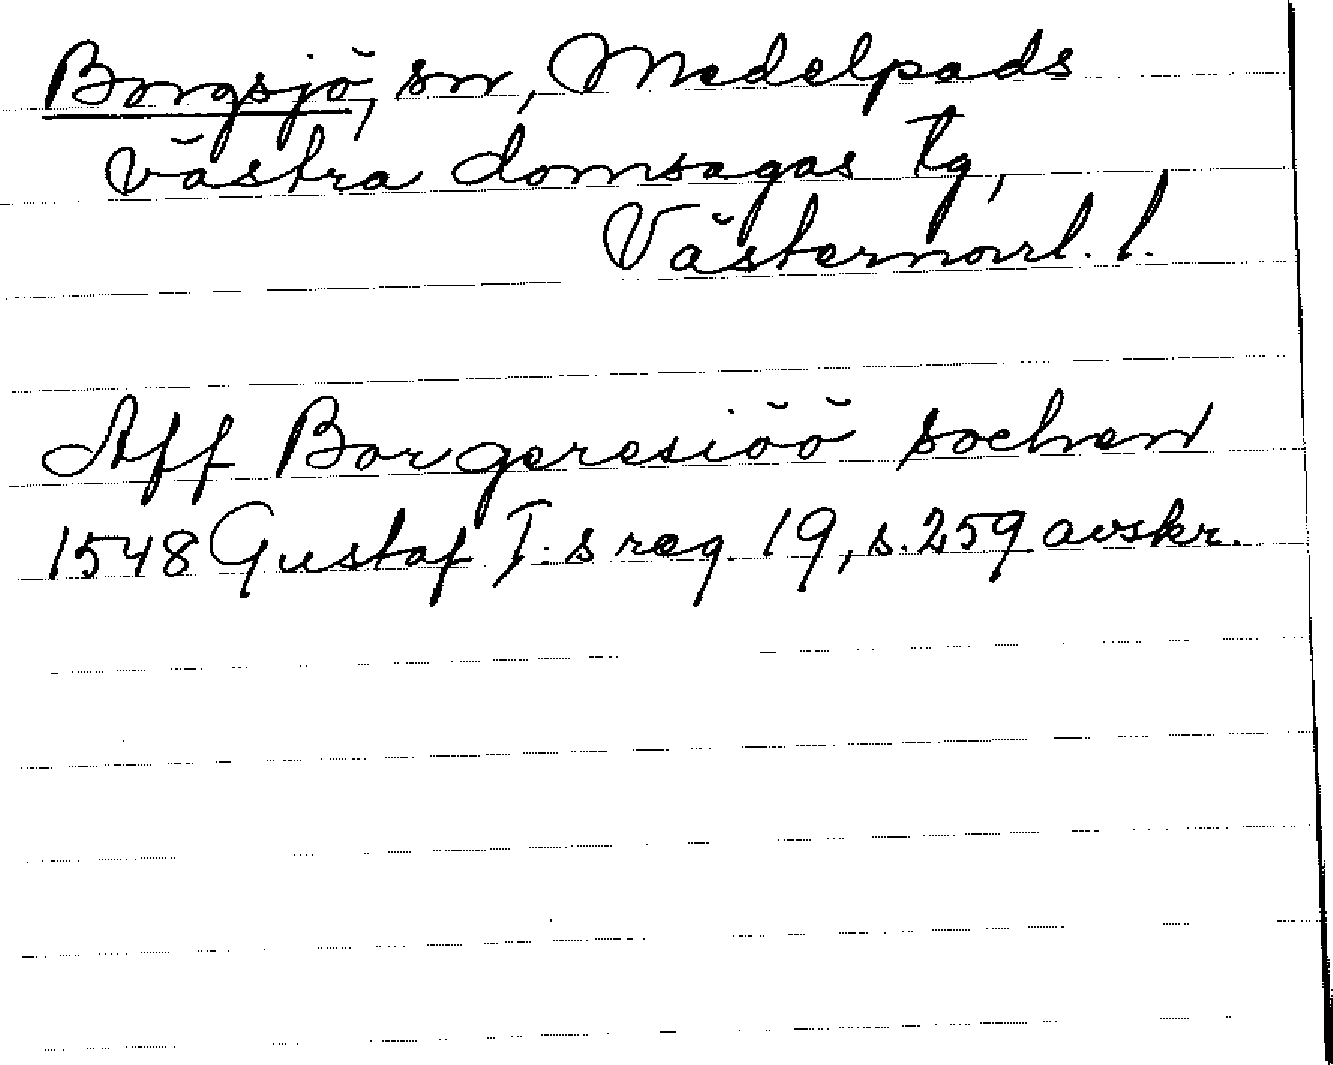 Borgsjö, sn, Medelpads
västra domsagas tg,
Västernorrl. l.
Aff Borgeresiöö sochen
1548 Gustaf I:s reg. 19, s. 259 avskr.